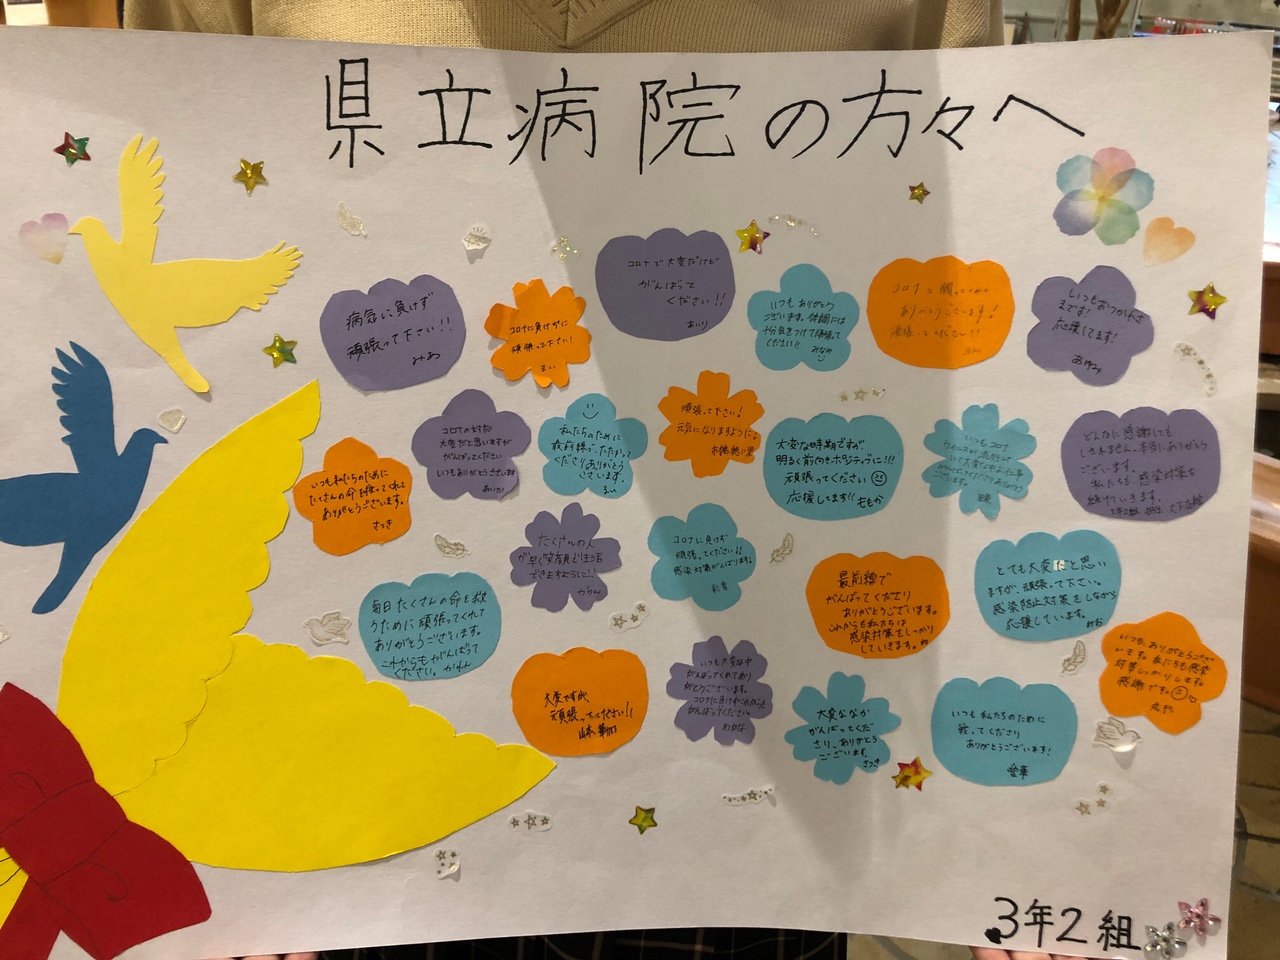 県立病院の方々へ
病気に負けず
頑張って下さい!!
みお
コロナに負けずに
頑張って下さい!
コロナで大変だけど
がんばって
ください!!
あいり
いつもありがとう
ございます。体調には
十分気をつけて頑張って
ください!!
みなみ
ありがとうございます!
いつもおつかれさ
まです!
応援してます!
あゆみ
いつも私たちのために
たくさんの命を救ってくれて
ありがとうございます。
さつき
コロナの対応
大変だと思いますが
がんばってください
いつもありがとうございます
あいか
私たちのために
最前線で、たたかって
くださりありがとう
ございます。
るい
頑張って下さい!
元気になりますように
大変な時期ですが
明るく前向きポジティブに!!!
頑張ってください
応援してます!! ももか
いつもコロナ
どんなに感謝しても
しきれません。本当にありがとう
ございます。
私たちも感染対策を
続けていきます。
たくさんの人
が早く笑顔で生活
できますように!!
かりん
コロナに負けず
頑張ってください!!
感染対策がんばります。
彩音
毎日たくさんの命を救
うために頑張ってくれて
ありがとうございます。
これからもがんばって
ください。 かれん
最前線で
がんばってくださり
ありがとうございます。
これからも私たちは
感染対策をしっかり
していきます。
とても大変だと思い
ますが、頑張って下さい。
感染防止対策をしながら
応援しています。
みお
いつも、ありがとうござ
います。私たちも感染
対策しっかりします。
感謝です。
大変ですが
頑張ってください!!
いつも大変な中
がんばってくれてあり
がとうございます。
コロナに負けずこれからも
がんばってください。
わかな
大変ななか
がんばってくだ
さり、ありがとう
ございます。
さつき
いつも私たちのために
戦ってくださり
ありがとうございます!
愛華
3年2組